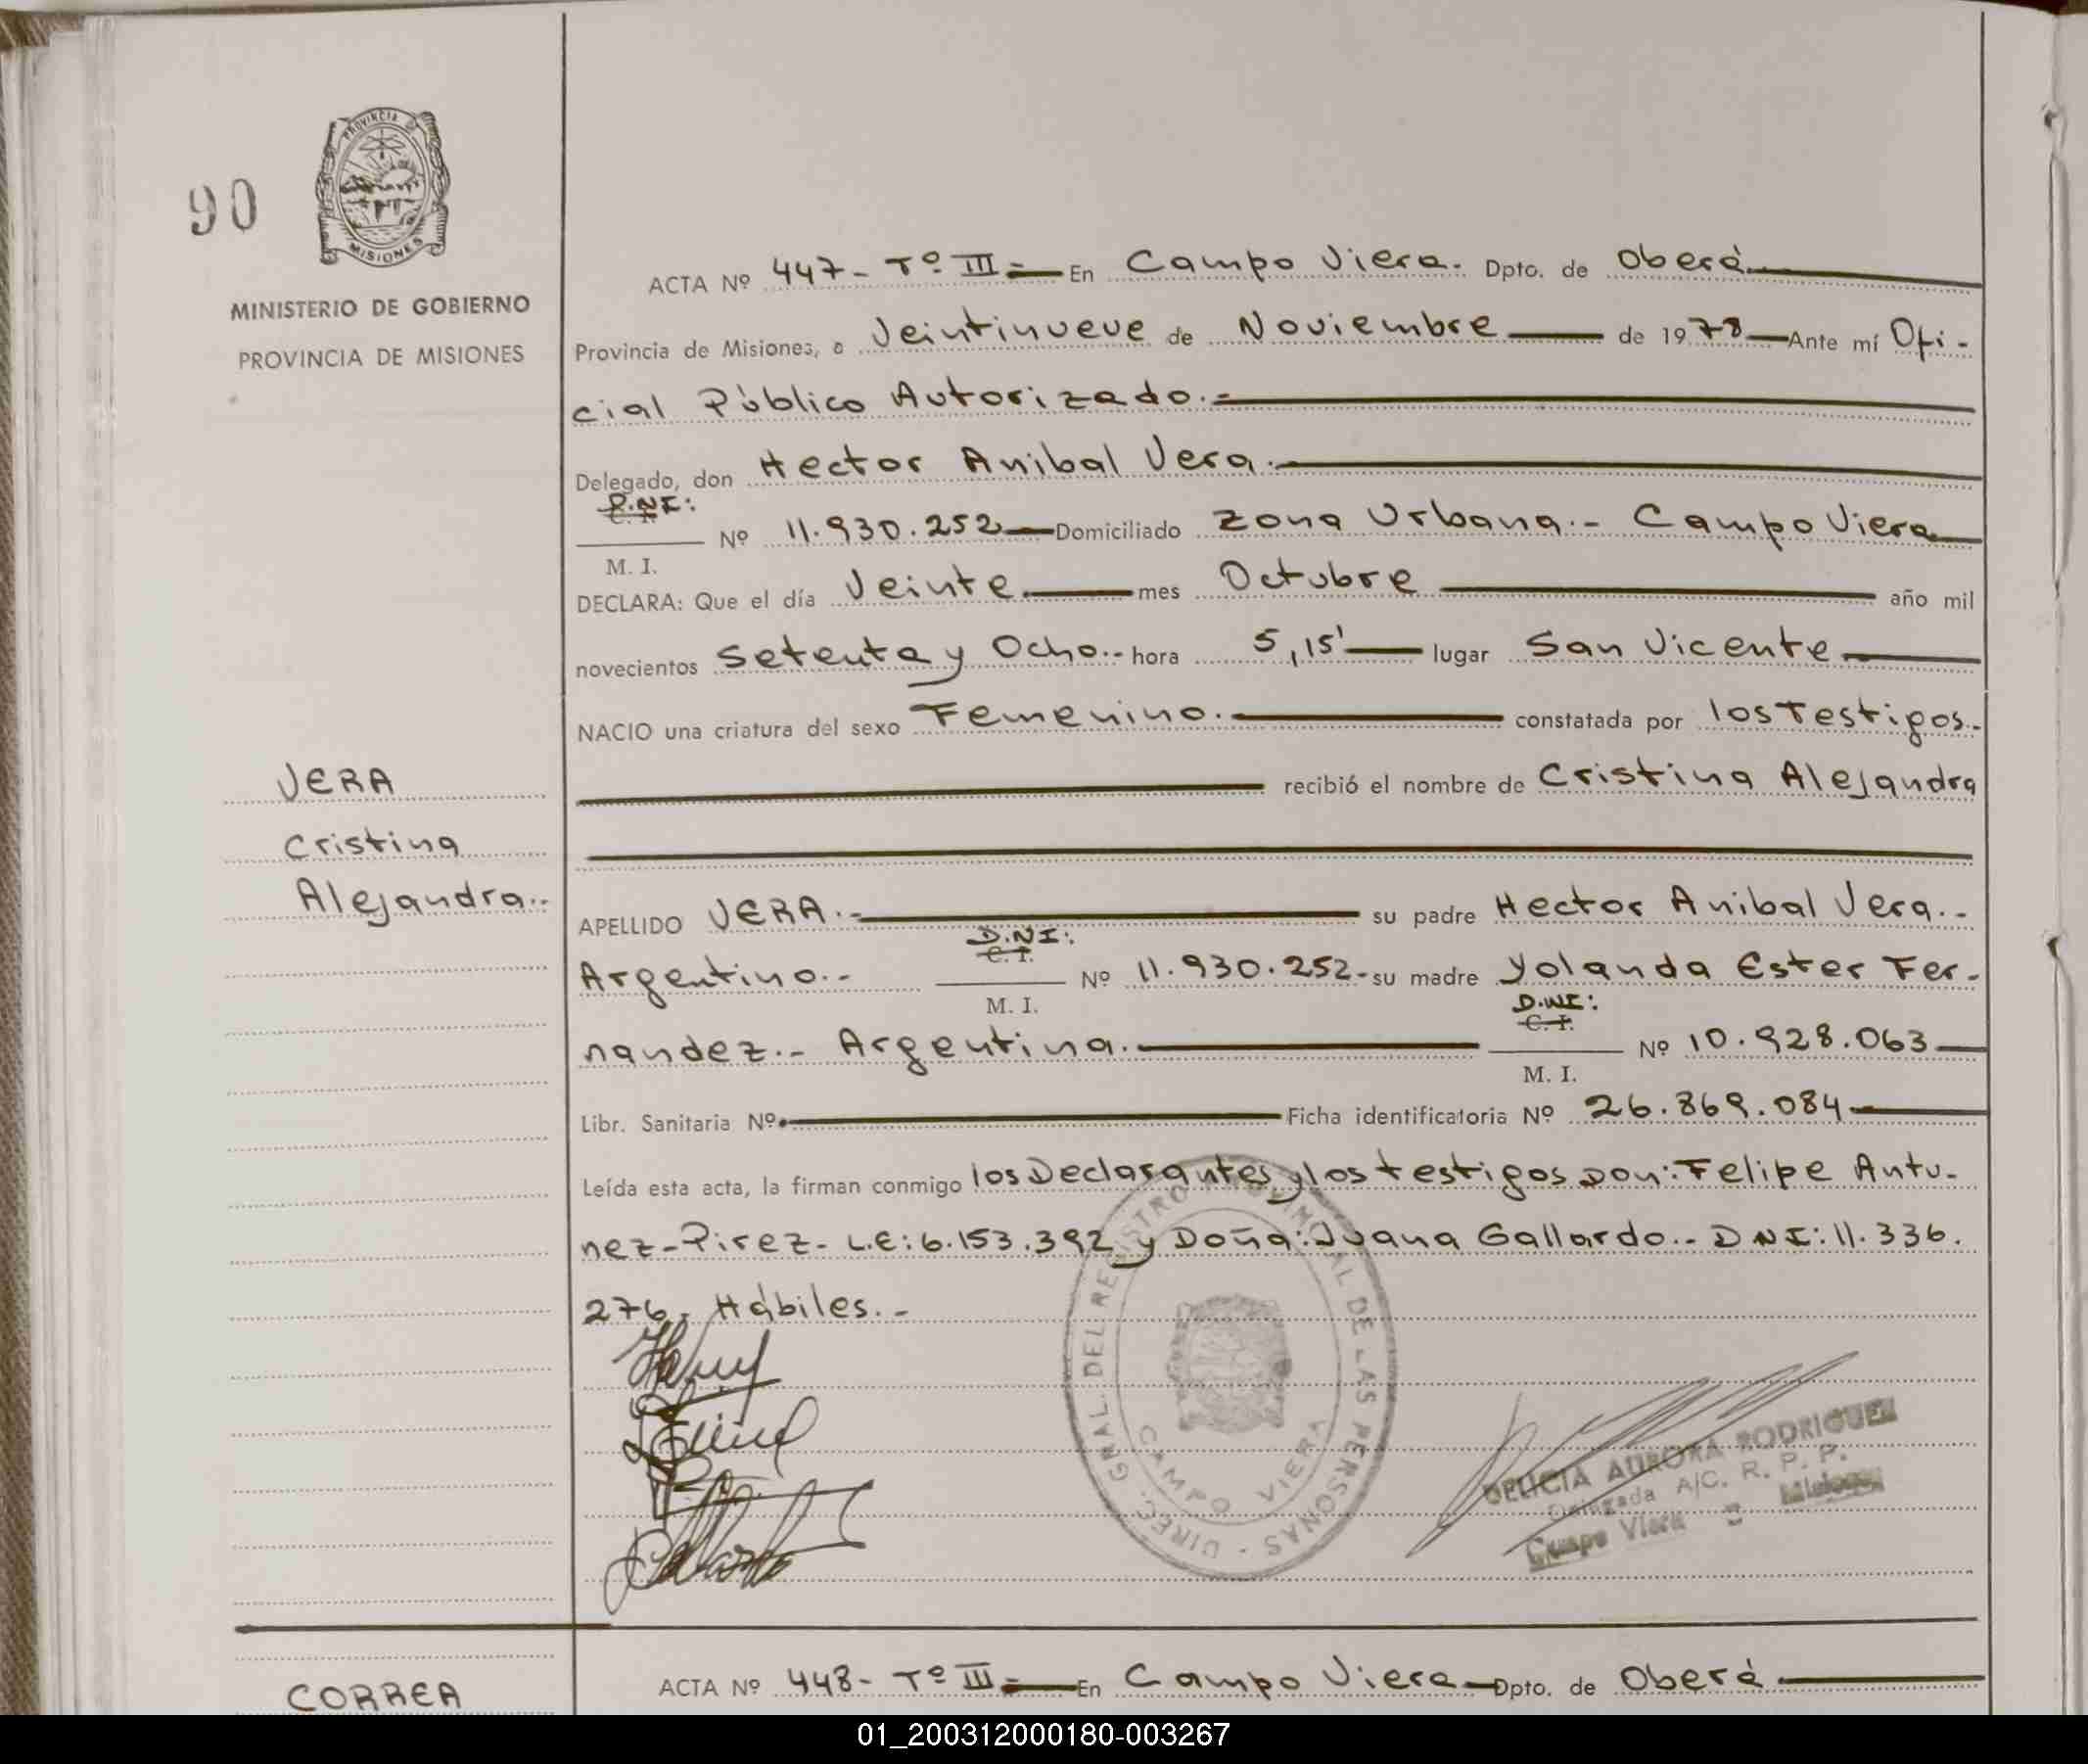 90
PROVINCIA DE
MISIONES
MINISTERIO DE GOBIERNO
PROVINCIA DE MISIONES
ACTA Nº 447- Tº III - En Campo Viera. Dpto. de Oberá
Provincia de Misiones, a Veintinueve de Noviembre de 1978 Ante mí Ofi-
cial Público Autorizado.-
Delegado, don Hector Anibal Vera.-
D.NI:
C. I.
Nº 11.930.252 Domiciliado Zona Urbana.- Campo Viera
M. I.
DECLARA: Que el día Veinte mes Octubre año mil
novecientos Setenta y Ocho.- hora 5,15' lugar San Vicente
NACIO una criatura del sexo Femenino. constatada por los Testigos.-
VERA
recibió el nombre de Cristina Alejandra
Cristina
Alejandra.-
APELLIDO VERA.- su padre Hector Anibal Vera.-
D.NI:
C. I.
Argentino.- Nº 11.930.252- su madre Yolanda Ester Fer-
M. I.
D.NI:
C. I.
nandez.- Argentina. Nº 10.928.063
M. I.
Libr. Sanitaria Nº. Ficha identificatoria Nº 26.869.084
Leída esta acta, la firman conmigo los Declarantes y los testigos Don: Felipe Antu-
nez-Pirez- L.E: 6.153.392 y Doña: Juana Gallardo.- DNI: 11.336.
276.- Hábiles.-
DIREC. GRAL. DEL REGISTRO PROVINCIAL DE LAS PERSONAS -
CAMPO VIERA
DELICIA AURORA RODRIGUEZ
Delegada A/C. R. P. P.
Campo Viera - Misiones
CORREA
ACTA Nº 448- Tº III - En Campo Viera Dpto. de Oberá
01_200312000180-003267